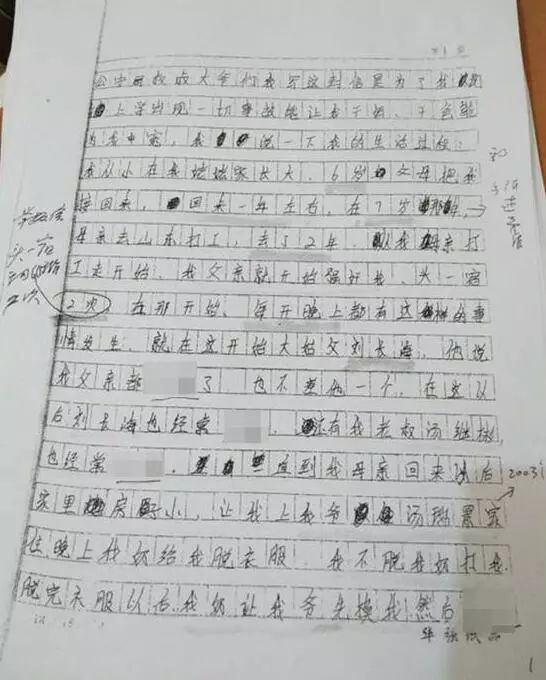 第1页
公安 叔叔大爷们我写这封信是为了我
上学出现一切事故能让我干妈、干爸能
为我申冤，我 说一下我的生活过程：
我从小在我姥姥家长大，6岁 父母把我
接回来， 回来一年左右，在7岁那年，
母亲去山东打工，去了2年， 从我母亲打
工走开始，我父亲就开始强奸我，头一宿
2次，在那开始，每天晚上都有这样的事
情发生，就在这开始大姑父刘长海，他说
我父亲都 了，也不差他一个，在这以
后刘长海也经常 ， 还有我老叔汤继彬，
也经常 ， 直到我母亲回来以后
2003
家里 房 小，让我上我爷 汤瑞景家
住晚上我奶给我脱衣服，我不脱我奶打我
脱完衣服以后我奶让我爷先 我然后
1